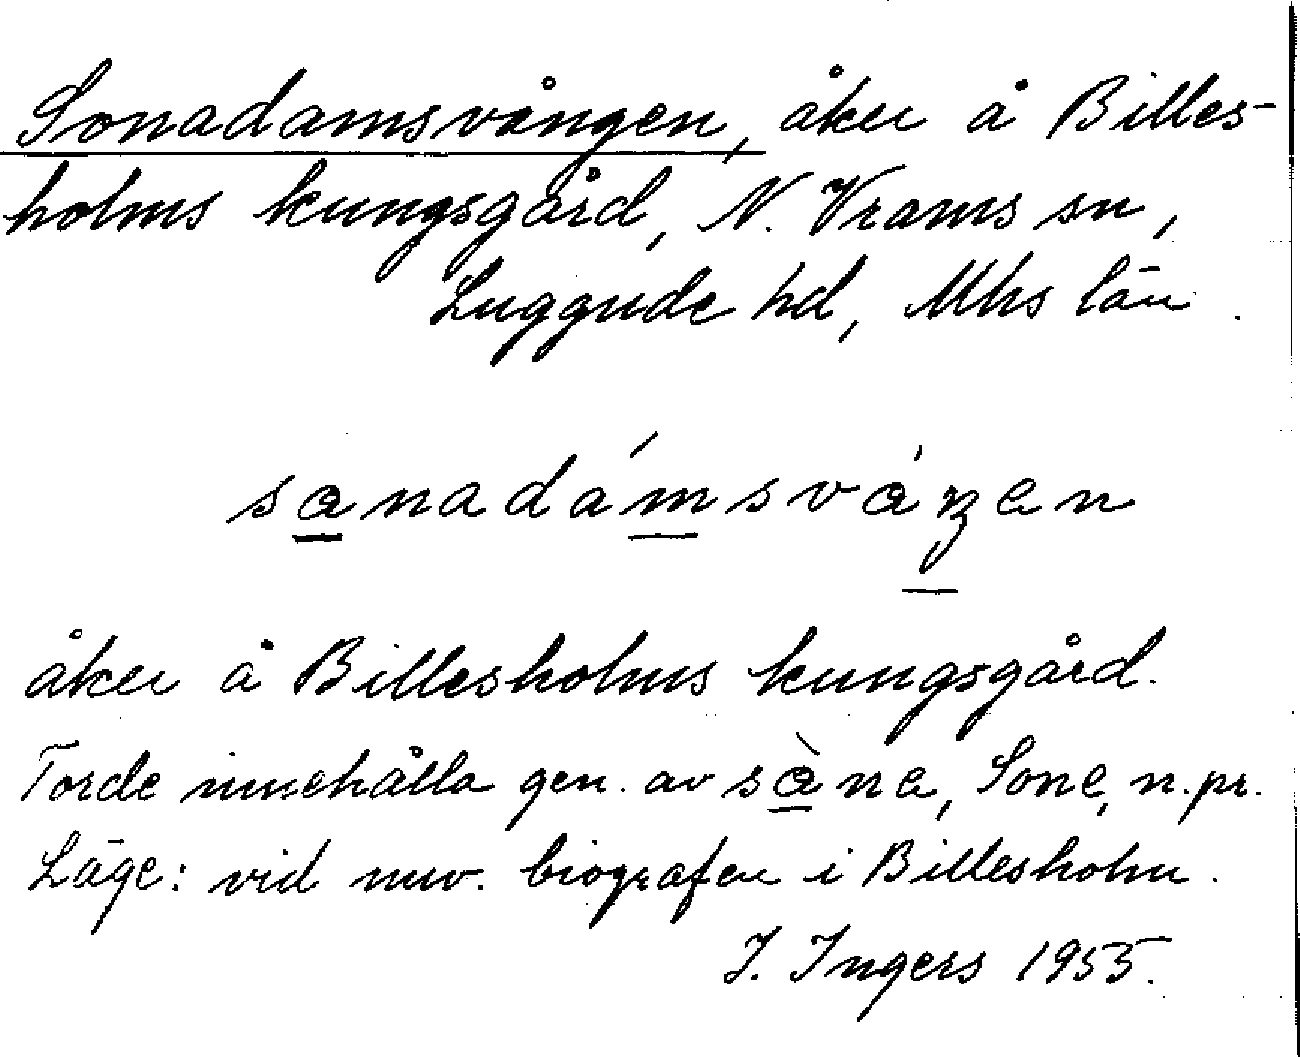 Sonadamsvången, åker å Billes-
holms kungsgård, N. Vrams sn,
Luggude hd, Mhs län.
sanadámsváŋen
åker å Billesholms kungsgård.
Torde innehålla gen. av sàne, Sone, n.pr.
Läge: vid nuv. biografen i Billesholm.
I. Ingers 1955.